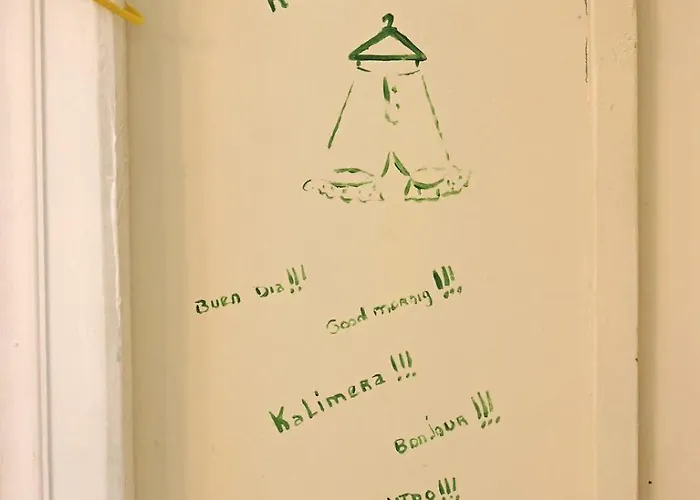 Buen Dia!!!
Good mornig!!!
KaLimeRa!!!
Bonjour!!!